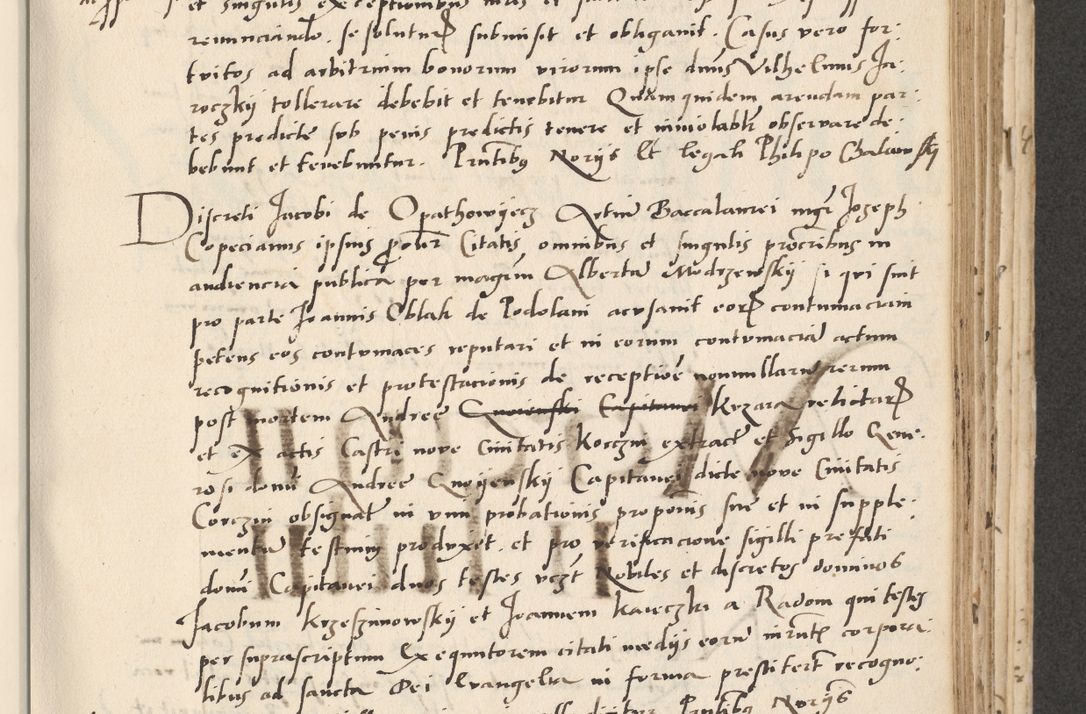 et singulis exceptionibus iuris et
renunciando. se soluturum submisit et obligavit. Casus vero for:
tuitos ad arbitrium bonorum virorum ipse dnus Vilhelmus Ja:
roczkij tollerare debebit et tenebitur Quam quidem arendam par:
tes predicte sub penis predictis tenere et inviolabilr observare de:
bebunt et tenebuntur. Pntibus Norijs Et legali Philipo Galiowskij
Discreti Jacobi de Opathowijecz Artium Baccalaurei mgr Joseph
Copecianus ipsius procur Citatis omnibus et singulis procribus in
audiencia publica per magrm Albertum Modrzewskij si qui sint
pro parte Joannis Oblak de Podolani acusavit eorum contumaciam
petens eos contumaces reputari et in eorum contumaciam actum
recognitionis et protestacionis de receptione nonnullarum rerum
post mortem Andree Kszara relictarum
et ex actis Castri nove Civitatis Korczin extractum et sigillo Gene:
rosi domini Andree Gnoijenskij Capitanei dicte nove Civitatis
Corczin obsignatum in vim probationis proponis sue et in supple:
mentum testium produxit. et pro verificacione sigilli prefati
domini Capitanei duos testes vczt Nobiles et discretos dominos
Jacobum Krzeszimowskij et Joannem Kaieczki a Radom qui testes
per suprascriptum Exequutorem citati medijs eorum iurutis corpora:
libus ad sancta Dei Evangelia in forma prestitert recogno:
Pntibus Norijs